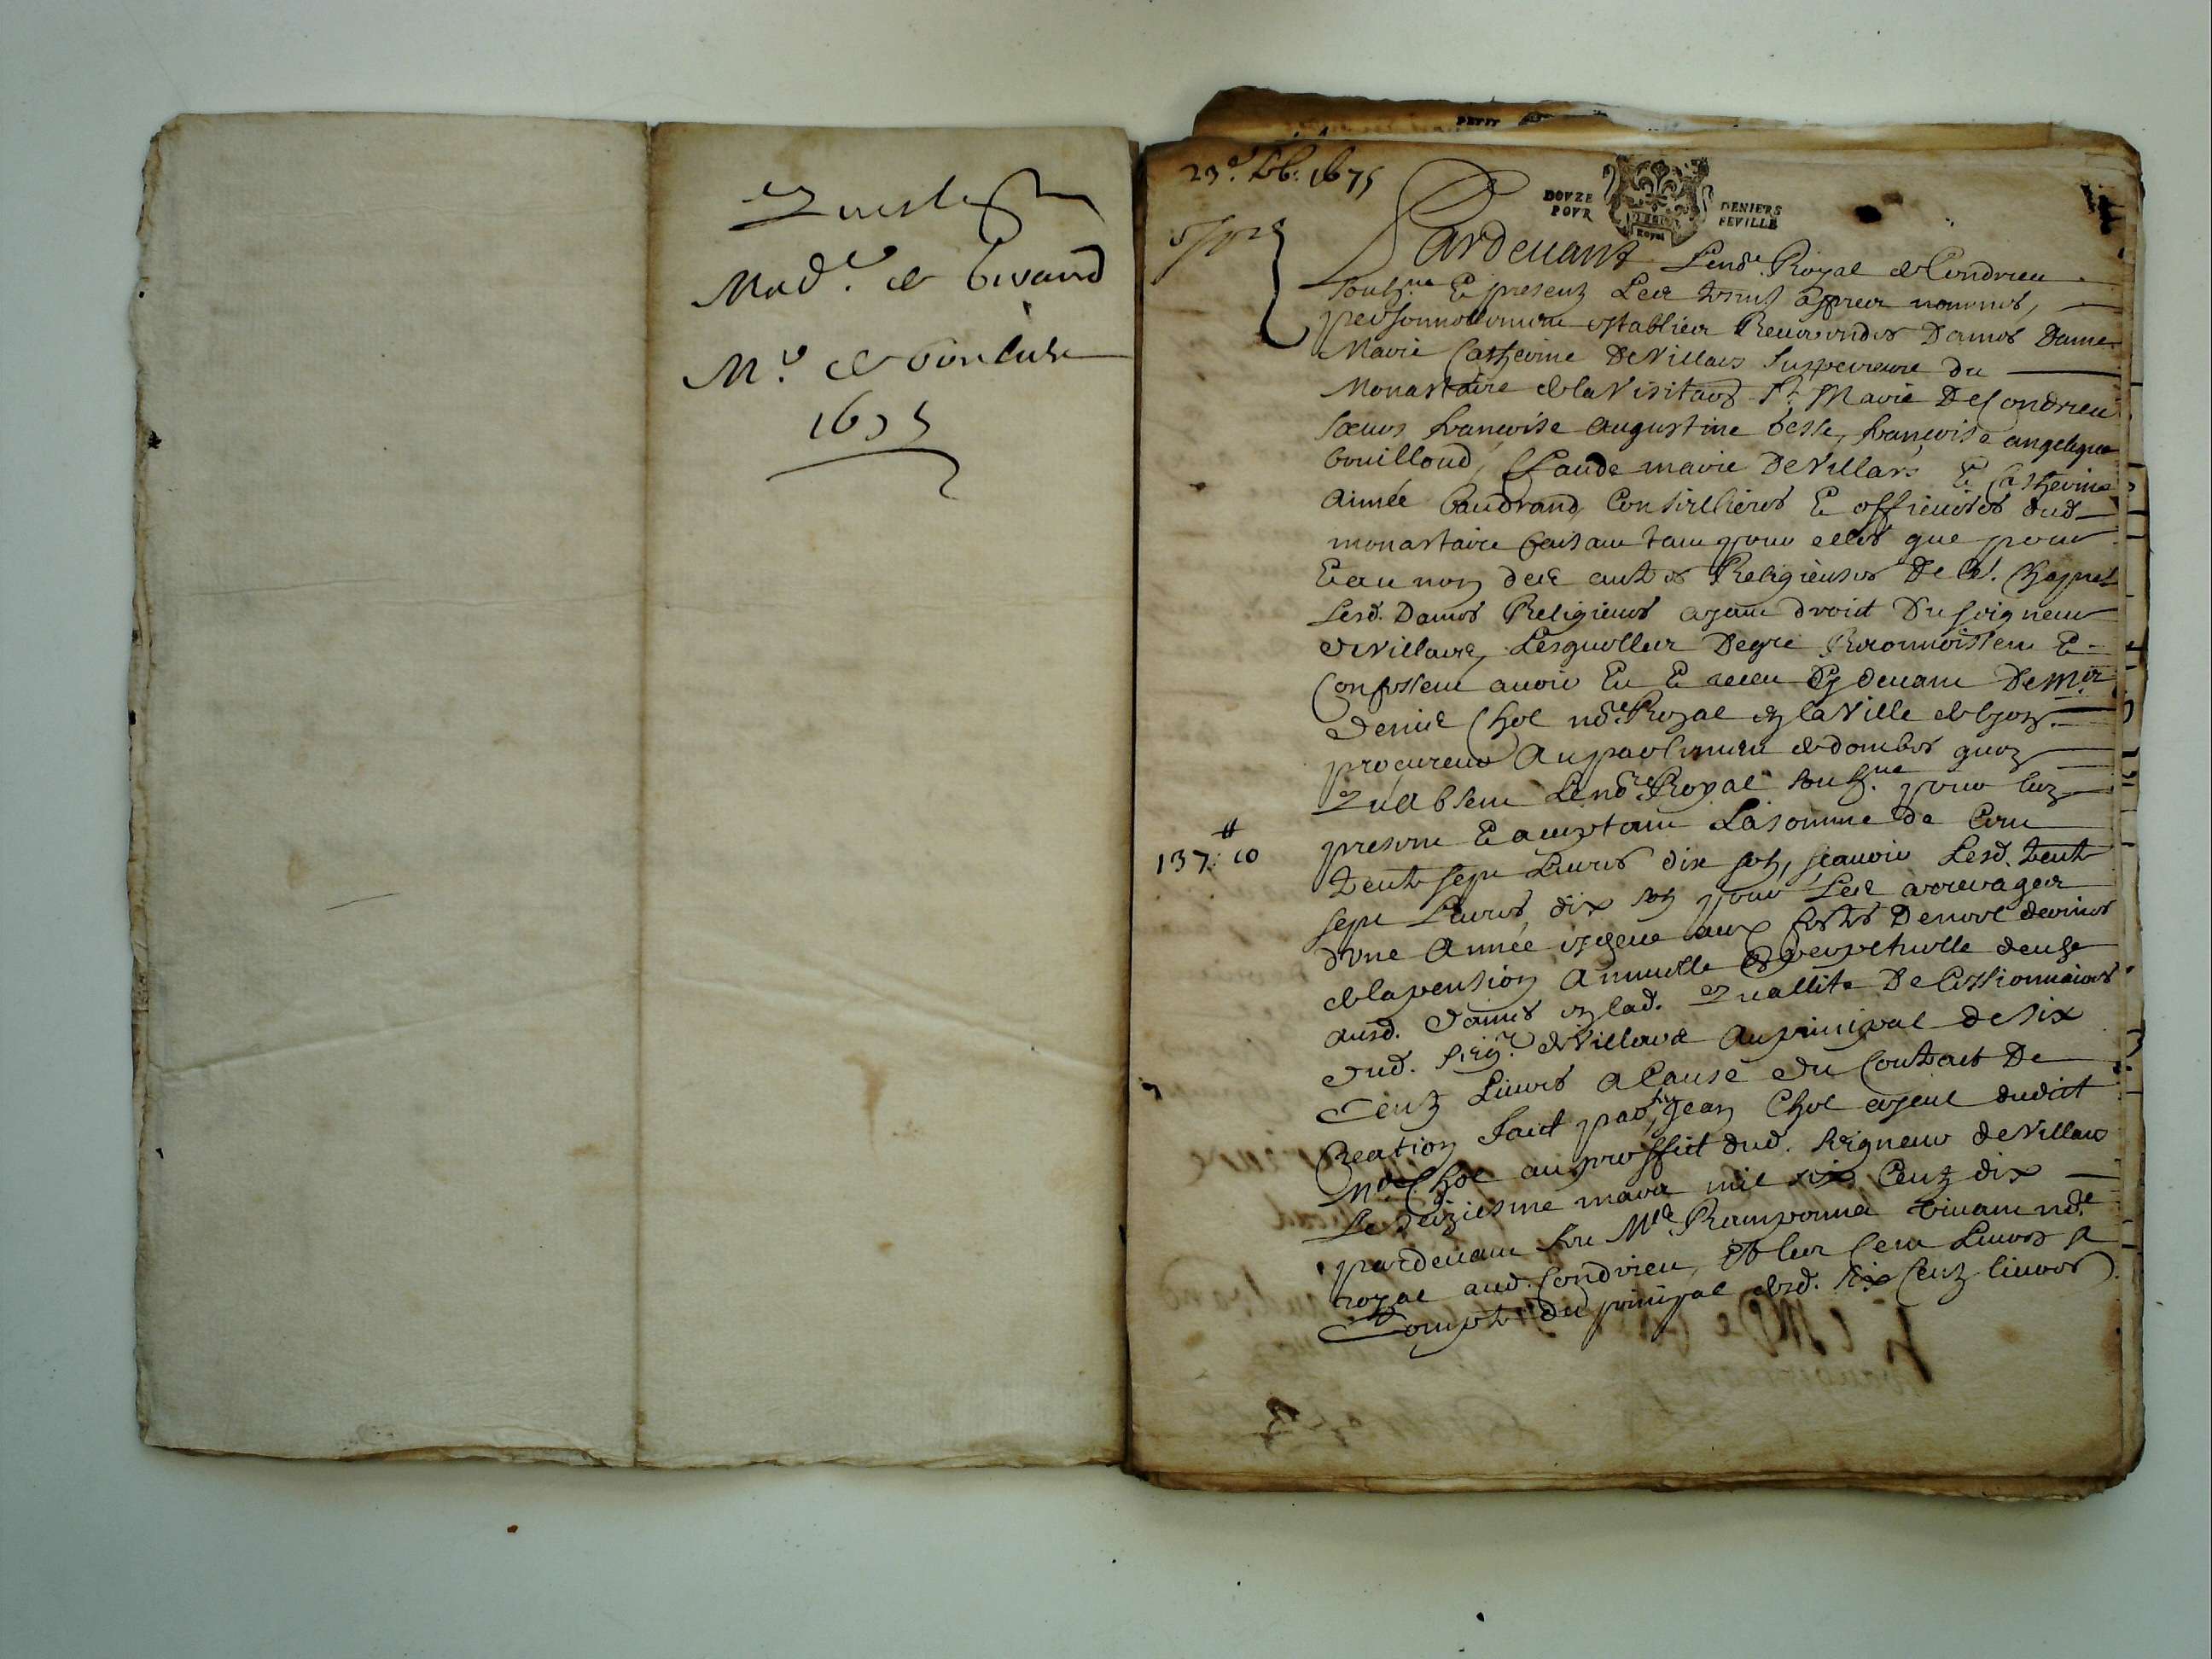 Mad.e de
M.r de
1675
PETIT
23.e 1675
DOVZE DENIERS
POVR FEVILLE
Royal
Pardeuant Le nore. Royal de Condrieu
soubz.ne E presenz Les apres nommes,
personnellement establies Reuerendes Dames Dame
Marie Catherine De Villars Superieure du
Monastaire de la Visitaon Ste Marie De Condrieu
sœurs francoise augustine besse, francoise angelique
bouilloud, Claude marie De Villars E Catherine
Aimée baudrand Conseillieres E officieres dud.
monastaire faisant tant pour elles que pour
E au nom des autres Religieuses De
Lesd. Dames Religieuses ayant droict Du seigneur
de Villars, Lesquelles De gré Recognoissent E
Confessent auoir Eu E receu Cy deuant De Mre
denis Chol nore. Royal en la Ville de lyon
procureur Au parlement de dombes quoy
qu'absent Le nore Royal soubz.ne pour luy
present E acceptant La somme de Cent
137.# 10
trente sept Liures dix solz, scauoir Lesd. trente
sept Liures dix solz pour Les arrerages
d'vne Année escheue aux festes De noel dernieres
de la pension Annuelle E perpetuelle deuhe
ausd. dames en lad. quallité De Cessionnaires
dud. Seig.r de Villars Au principal de six
Centz Liures a Cause du Contract De
Creation faict par feu Jean Chol ayeul dudict
Me Chol au proffict dud. seigneur de Villars
Le seiziesme mars mil six Centz dix
pardeuant feu Me viuant nore
royal aud. Condrieu, Et les Cent Liures a
Compte du principal desd. six Centz liures